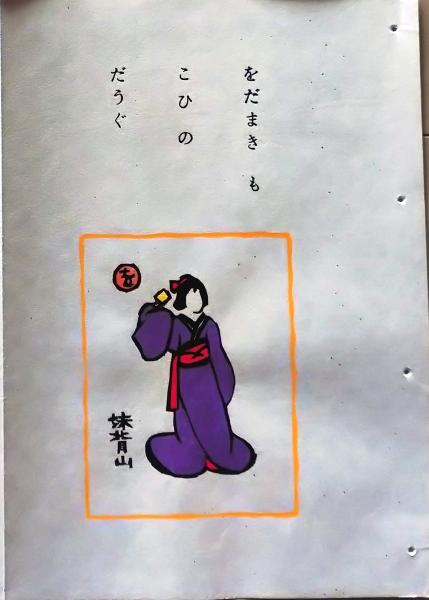 をだまきも
こひの
だうぐ
妹背山